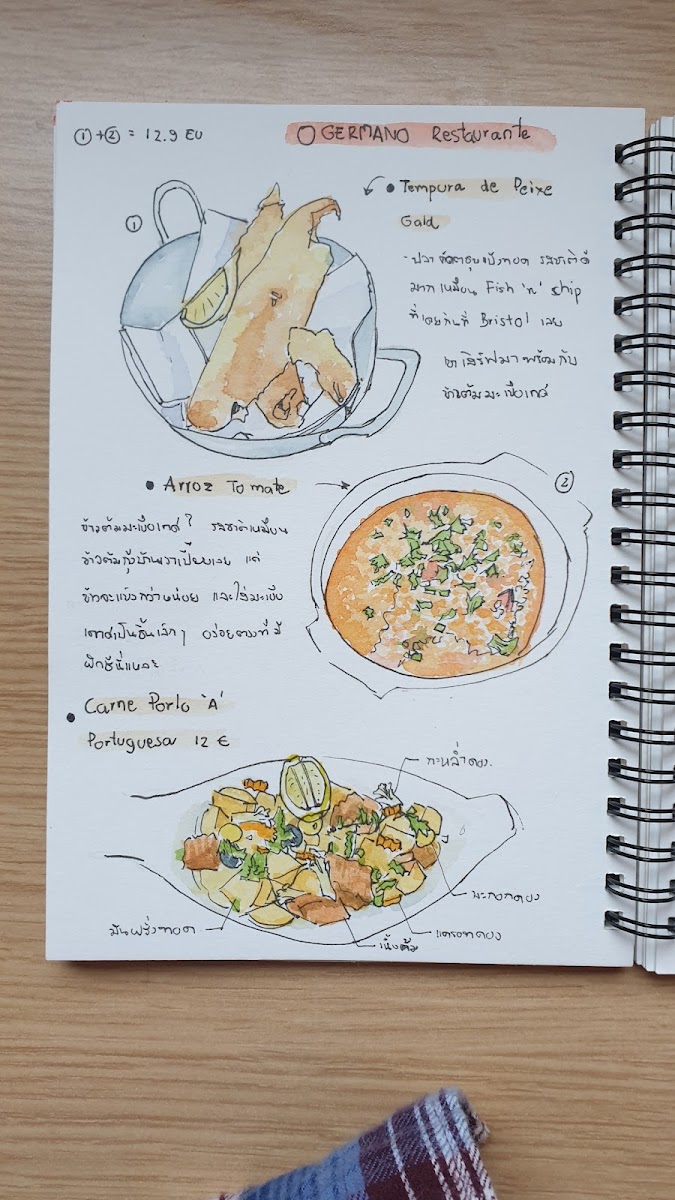 ①+② = 12.9 EU
O GERMANO Restaurante
• Tempura de Peixe
Gald
①
- ปลาชุบแป้งทอด รสชาติดี
มาก เหมือน Fish 'n' chip
ที่เคยกินที่ Bristol เลย
เสิร์ฟมาพร้อมกับ
ข้าวต้มมะเขือเทศ
• Arroz Tomate
②
ข้าวต้มมะเขือเทศ? รสชาติเหมือน
ข้าวต้มกุ้งบ้านเราเปี๊ยบเลย แต่
ข้าวจะแข็งกว่าหน่อย และใส่มะเขือ
เทศเป็นชิ้นเล็กๆ อร่อยตรงที่มี
ผักชีนี่แหละ
• Carne Porlo 'A'
Portuguesa 12 €
กะหล่ำดอง.
มะกอกดอง
แครอทดอง
เนื้อ
มันฝรั่งทอด